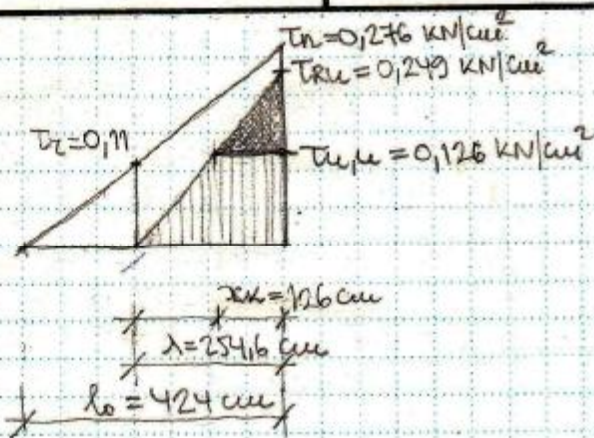 τn=0,276 KN/cm²
τRu=0,249 KN/cm²
τr=0,11
τu,u=0,126 KN/cm²
xk=126 cm
λ=254,6 cm
l₀=424 cm